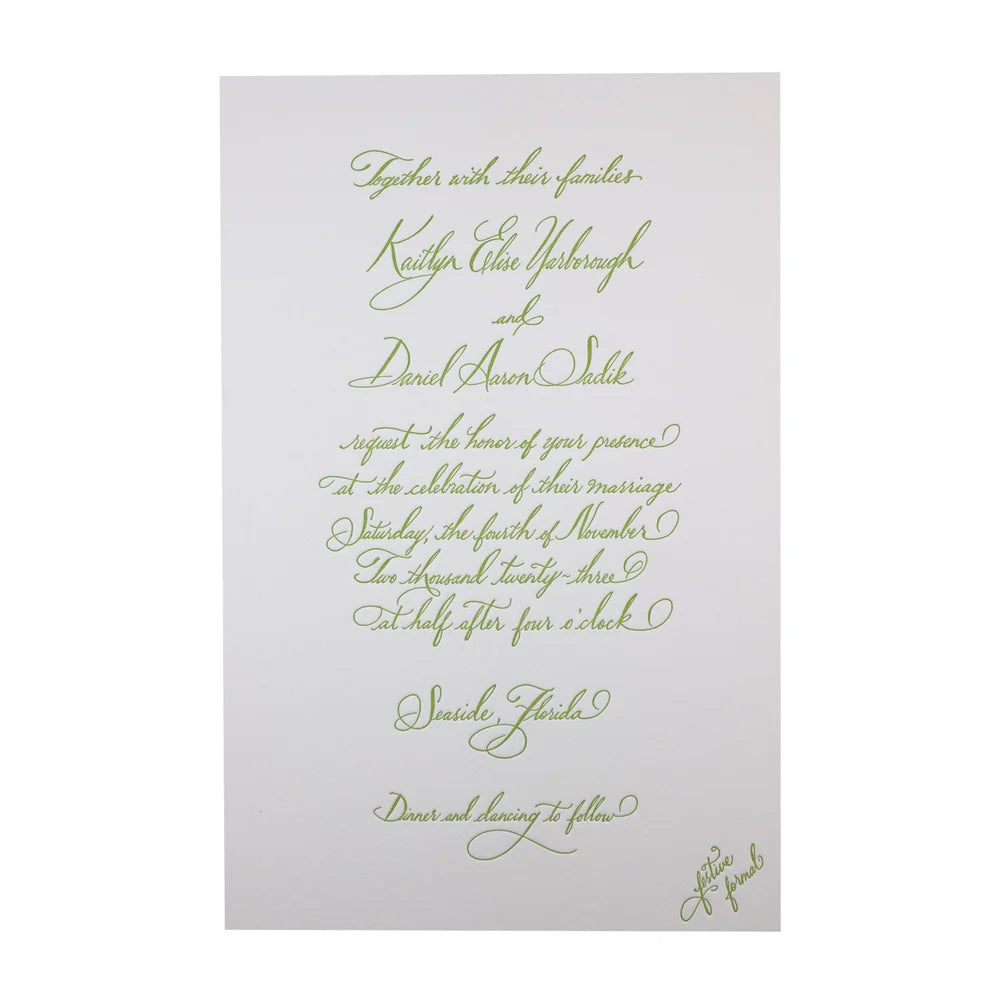 Together with their families
Kaitlyn Elise Yarborough
and
Daniel Aaron Sadik
request the honor of your presence
at the celebration of their marriage
Saturday, the fourth of November
Two thousand twenty~three
at half after four o'clock
Seaside, Florida
Dinner and dancing to follow
festive
formal